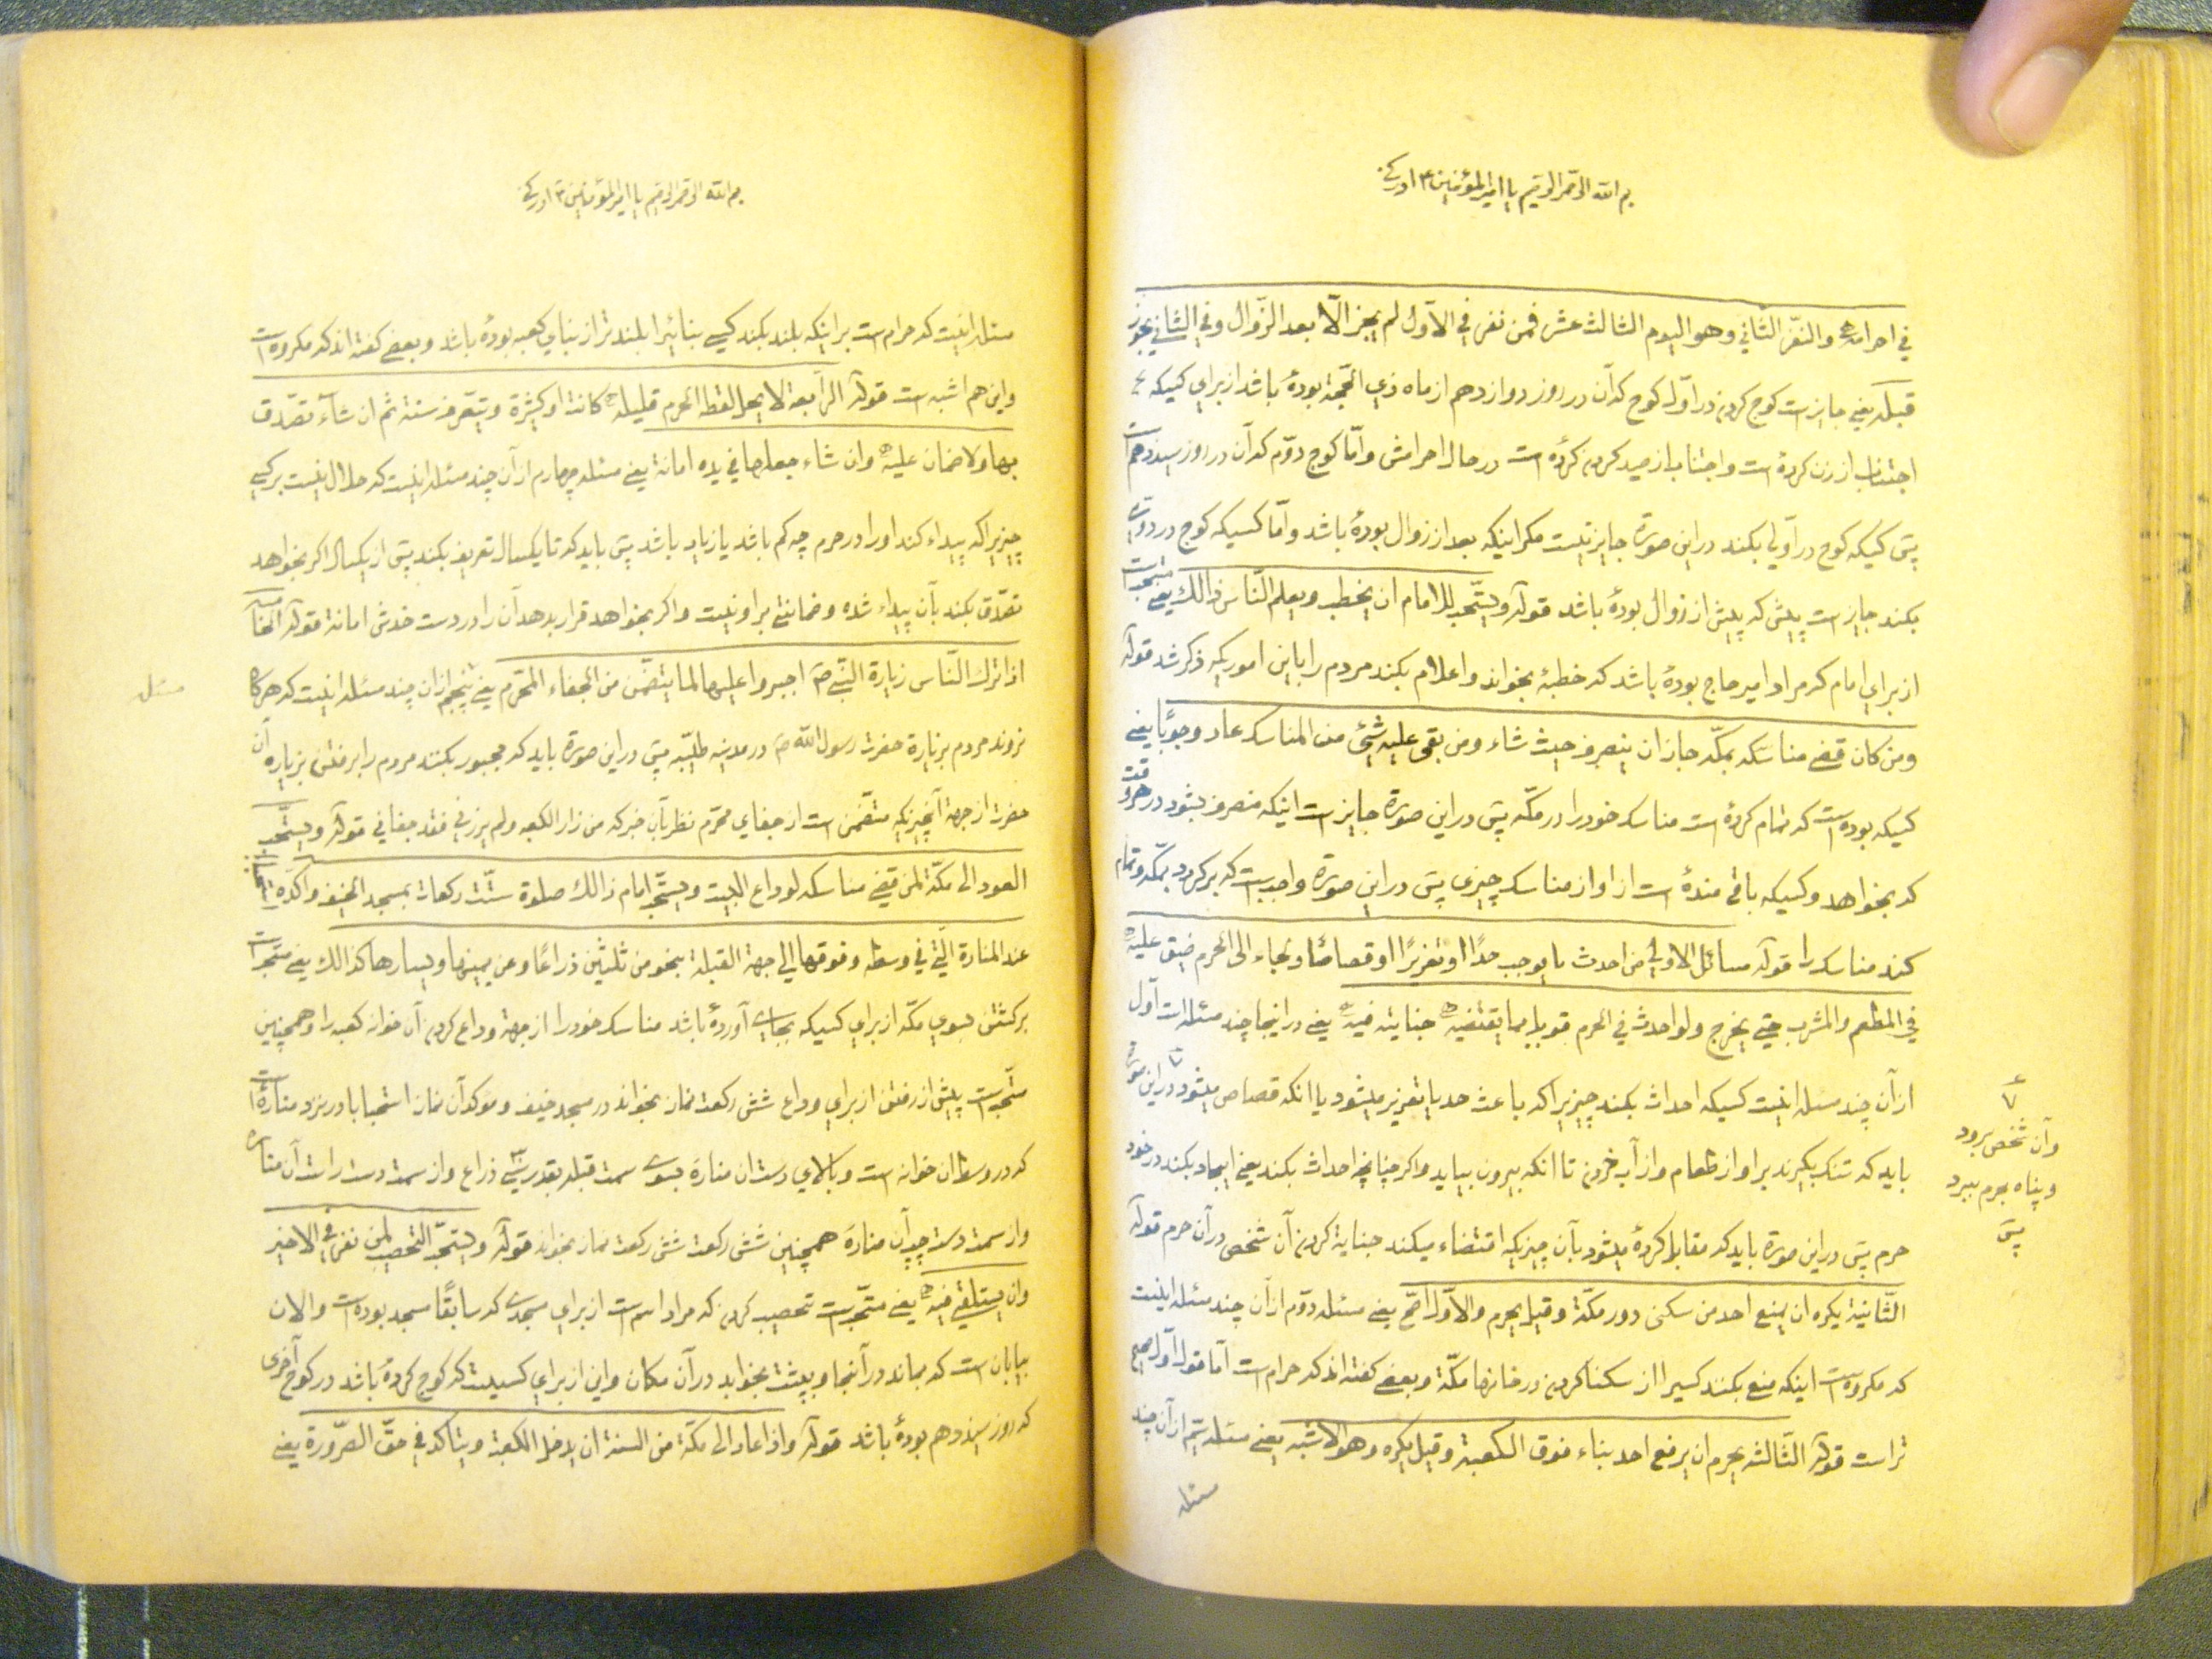 بسم الله الرحمن الرحیم یا امیر المؤمنین ادرکنی
في احرامه والنفر الثاني وهو اليوم الثالث عشر فمن نفر في الاول لم يجز الّا بعد الزّوال وفي الثاني يجوز
قبله يعني جايز است كوچ كردن در اوّل كوچ كه آن در روز دوازدهم از ماه ذي الحجّة بوده باشد از براي كسيكه
اجتناب از زن كرده است و اجتناب از صيد كردن كرده است در حال احرامش و امّا كوچ دوّم كه آن در روز سيزدهم است
پس كسيكه كوچ در اولي بكند در اين صورة جايز نيست مكر اينكه بعد از زوال بوده باشد و امّا كسيكه كوچ در دوّمي
بكند جايز است پيش كه پيش از زوال بوده باشد قوله ويستحب للامام ان يخطب ويعلم النّاس ذالك يعني مستحب است
از براي امام كه مراد امير حاج بوده باشد كه خطبه بخواند و اعلام بكند مردم را باين اموريكه ذكر شد قوله
ومن كان قضى مناسكه بمكّة جاز ان ينصرف حيث شاء ومن بقى عليه شيئ من المناسك عاد وجوبًا يعني
كسيكه بوده است كه تمام كرده است مناسك خود را در مكّه پس در اين صورة جايز است اينكه منصرف بشود در هر وقت
كه بخواهد و كسيكه باقي مانده است از او از مناسك چيزى پس در اين صورة واجب است كه بركردد بمكّه و تمام
كند مناسك را قوله مسائل الاولى من احدث ما يوجب حدًّا او تعزيرًا او قصاصًا ولجاء الى الحرم ضيق عليه
في المطعم والمشرب حتى يخرج ولو احدث في الحرم قوبل بما يقتضيه جنايته فيه يعني در اينجا چند مسئله است اول
از آن چند مسئله اينست كسيكه احداث بكند چيزيرا كه باعث حد يا تعزير ميشود يا انكه قصاص ميشود در اين صورة
بايد كه تنك بكيرند بر او از طعام و از آب خوردن تا انكه بيرون بيايد و اكر چنانچه احداث بكند يعني ايجاد بكند در خود
حرم پس در اين صورة بايد كه مقابل كرده ميشود بآن چيزيكه اقتضاء ميكند جناية كردن آن شخص در آن حرم قوله
الثّانية يكره ان يمنع احد من سكنى دور مكّة وقيل يحرم والاوّل اصحّ يعني مسئله دوّم از آن چند مسئله اينست
كه مكروه است اينكه منع بكند كسيرا از سكنا كردن در خانها مكّة و بعضي كفته اند كه حرام است امّا قول اوّل صحيح
تر است قوله الثّالثه يحرم ان يرفع احد بناء فوق الكعبة وقيل يكره وهو الاشبه يعني مسئله سيّم از آن چند
مسئله
وآن شخص برود
و پناه بحرم ببرد
پس
بسم الله الرحمن الرحیم یا امیر المؤمنین ادرکنی
مسئله اينست كه حرام است بر اينكه بلند بكند كسي بنائيرا بلندتر از بناي كعبه بوده باشد و بعضي كفته اند كه مكروه است
و اين هم اشبه است قوله الرّابعة لا يحل لقطة الحرم قليلة كانت او كثيرة و يتعرف سنة ثم ان شاء تصدّق
بها ولا ضمان عليه وان شاء جعلها في يده امانة يعني مسئله چهارم از آن چند مسئله اينست كه حلال نيست بر كسي
چيزيرا كه پيداء كند او را در حرم چه كم باشد يا زياد باشد پس بايد كه تا يكسال تعريف بكند پس از يكسال اكر بخواهد
تصدّق بكند بآن پيداء شده و ضمانتي بر او نيست و اكر بخواهد قرار بدهد آن را در دست خدش امانة قوله الخامسة
اذا ترك النّاس زيارة النّبي ص اجبروا عليها لما يتضمّن من الجفاء المحرّم يعني پنجم از ان چند مسئله اينست كه هركاه
نروند مردم بزيارة حضرت رسول الله ص در مدينه طيّبه پس در اين صورة بايد كه مجبور بكنند مردم را بر رفتن بزيارة آن
حضرت از جهة آنچيزيكه متضمّن است از جفاي محرّم نظر بآن خبر كه من زار الكعبه ولم يزرني فقد جفاني قوله ويستحب
العود الى مكّة لمن قضى مناسكه لوداع البيت ويستحب امام ذالك صلوة ستّت ركعات بمسجد الخيف واكده استحبابا
عند المنارة الّتي في وسطه وفوقها الى جهة القبلة بنحو من ثلثين ذراعًا وعن يمينها ويسارها كذالك يعني مستحب است
بركشتن بسوي مكّه از براي كسيكه بجاى آورده باشد مناسك خود را از جهة وداع كردن آن خوانه كعبه را و همچنين
مستحب است پيش از رفتن از براي وداع شش ركعت نماز بخواند در مسجد خيف و موكد آن نماز استحبابا در نزد مناره است
كه در وسط ان خوانه است و بالاي دست ان مناره بسوى سمت قبله بقدر سي ذراع و از سمت دست راست آن مناره
و از سمت دست چپ آن مناره همچنين شش ركعت شش ركعت نماز بخواند قوله ويستحب التحصيب لمن نفر في الاخير
وان يستلقي فيه يعني مستحب است تحصيب كردن كه مراد اسم است از براي مسجدى كه سابقًا مسجد بوده است و الان
بيابان است كه بماند در آنجا و بپشت بخوابد در آن مكان و اين از براي كسيست كه كوچ كرده باشد در كوچ آخرى
كه روز سيزدهم بوده باشد قوله واذا عاد الى مكّة من السنة ان يدخل الكعبة ويتأكد في حقّ الصّرورة يعني
مسئله